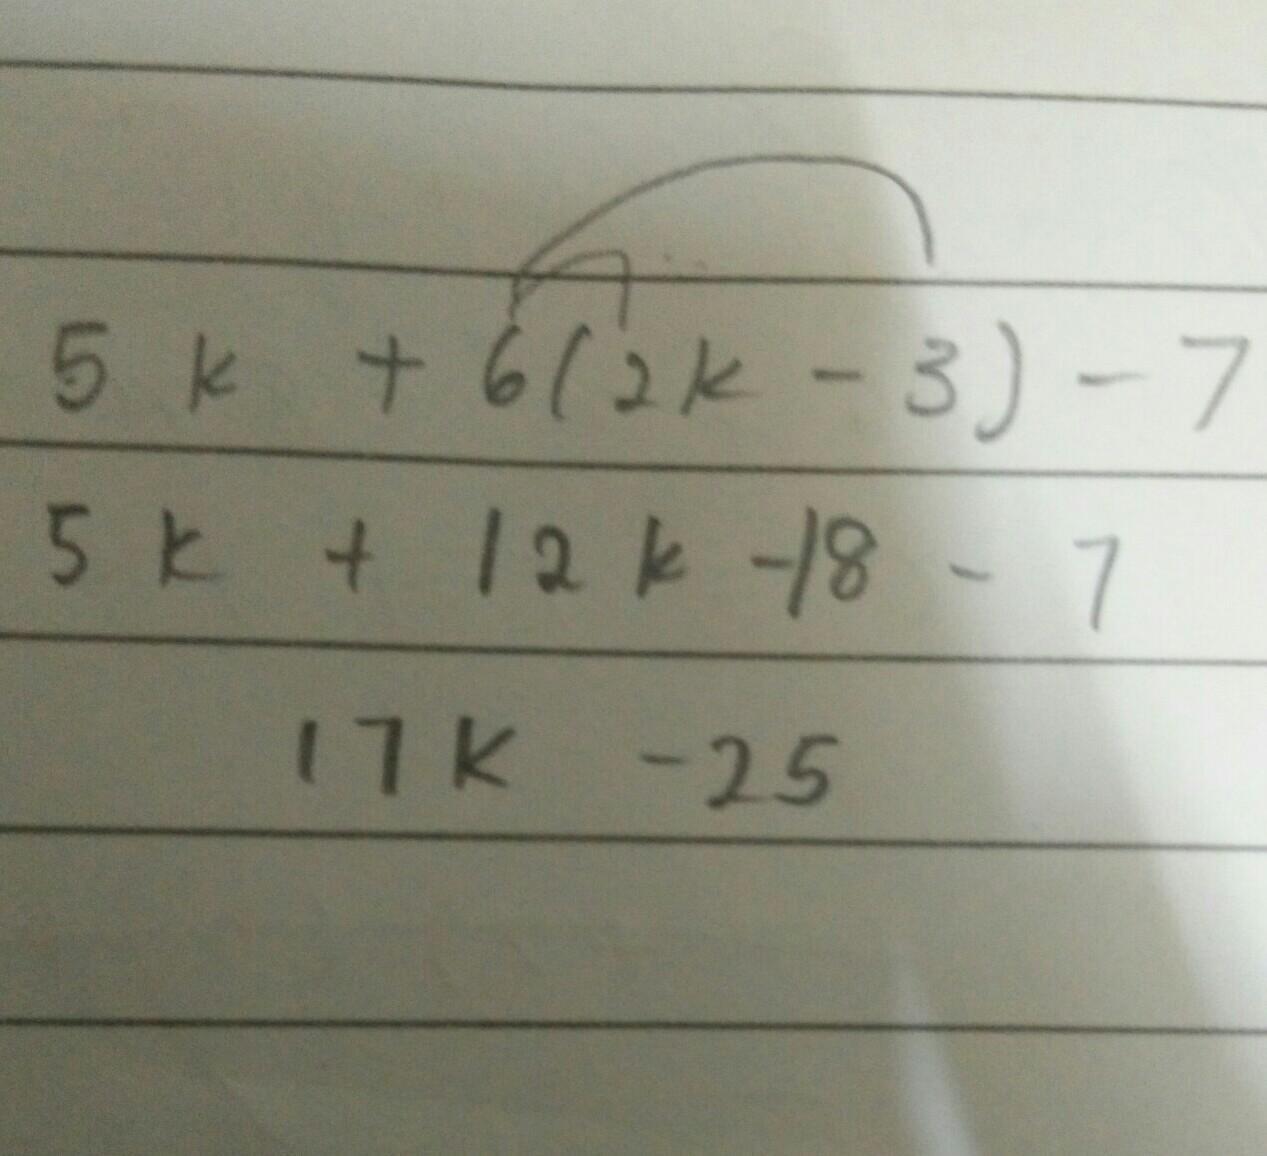 5k + 6(2k - 3) - 7
5k + 12k - 18 - 7
17k - 25